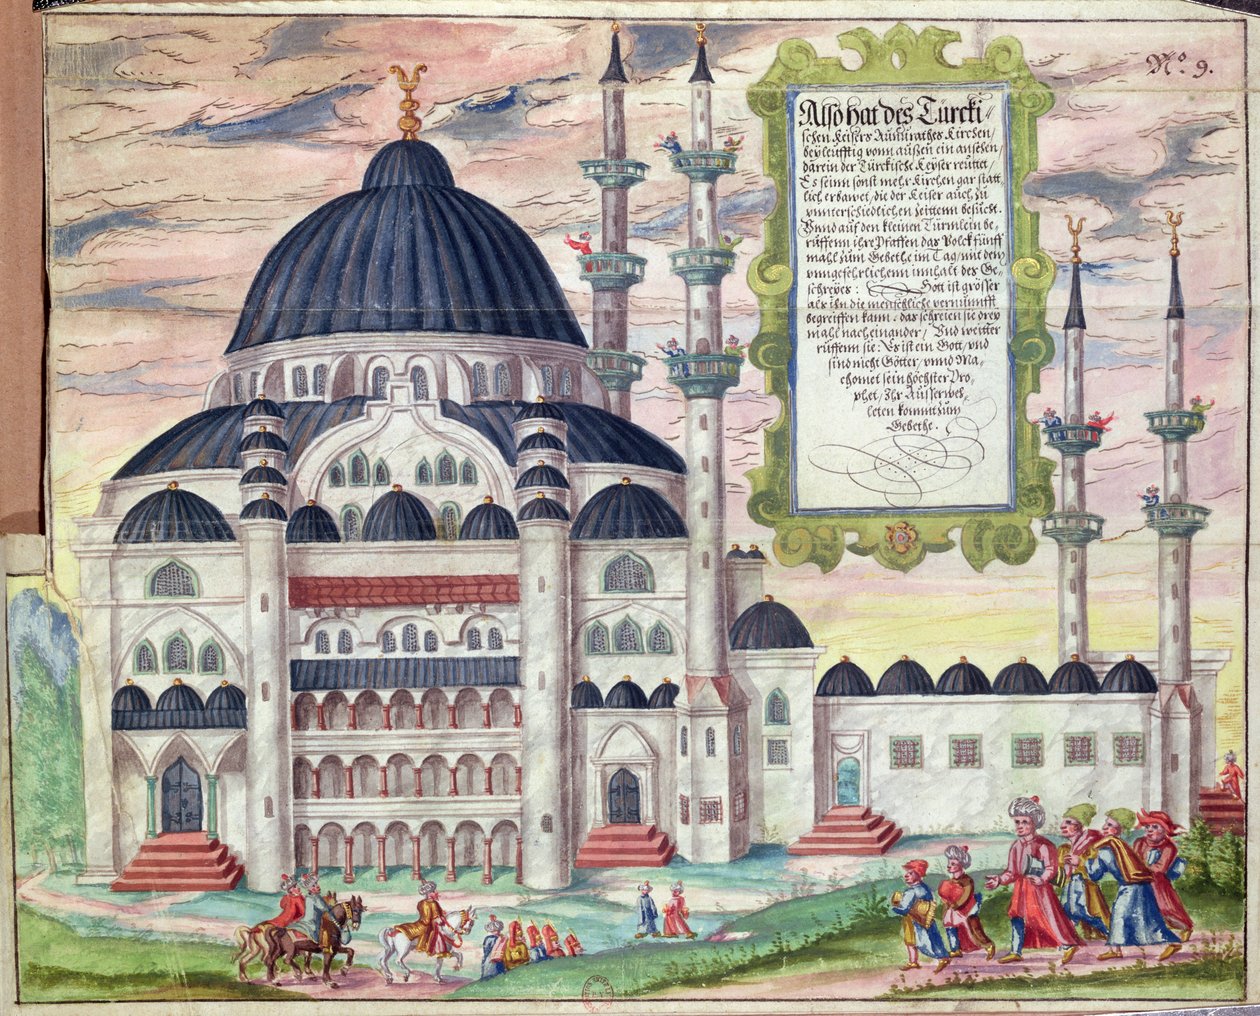 No. 9.
Also hat des Türcki/
schen Keisers Amurathes Kirchen/
beyleüfftig vonn außen ein ansehen/
darein der Türckische Keyser reüttet/
Es seinn sonst mehr Kirchen gar statt
lich erbawet/die der Keiser auch zü
vnnterschiedlichen zeittenn besücht.
Vnnd auf den kleinen Türnlein be,
rüffenn ihre Pfaffen das Volck fünff
mahl züm Gebethe im Tag/mit dem
vmgefehrlichenn innhalt des Ge,
schreyes: Gott ist grösser
als ihn die menschliche vernünnfft
begreiffen kann: das schreien sie drey
mahl nach einander/ Vnd weitter
rüffenn sie: Er ist ein Gott/vnd
sind nicht Götter/vnnd Ma,
chomet sein höchster Pro,
phet/Ihr Aüsserweh,
leten kommt züm
Gebethe.